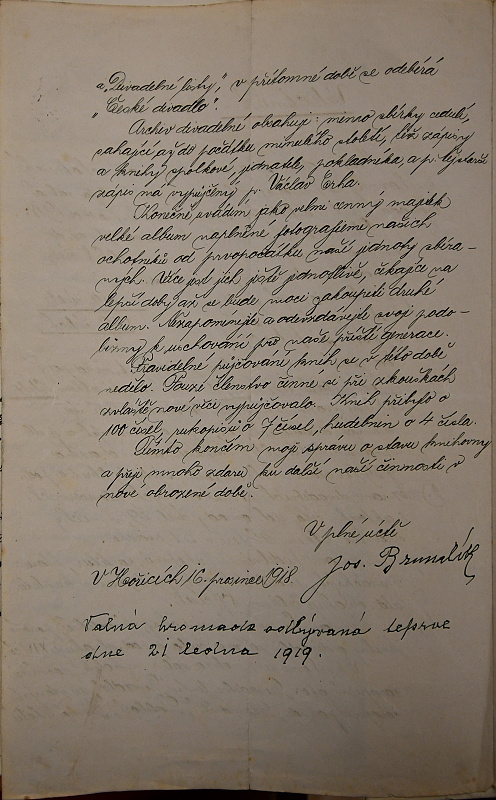 a „Divadelní listy“, v přítomné době se odebírá
„České divadlo“.
Archiv divadelní obsahuje: mimo sbírky cedulí,
sahající až do počátku minulého století, též zápisy
a knihy spolkové, jednatele, pokladníka a p.
zápis má vypůjčený p. Václav Erha.
Konečně uvádím jako velmi cenný majetek
velké album naplněné fotografiemi našich
ochotníků od prvopočátku naší jednoty sbíra-
ných. Více jest jich ještě jednotlivě, čekající na
lepší doby až se bude moci zakoupiti druhé
album. Nezapomínejte a odevzdávejte svoji podo-
bizny k uschování pro naše příští generace.
Pravidelné půjčování knih se v této době
nedělo. Pouze členstvo činné si při zkouškách
zvláště nové věci vypůjčovalo. Knih přibylo o
100 čísel, rukopisů o 7 čísel, hudebnin o 4 čísla.
Tímto končím moji správu o stavu knihovny
a přeji mnoho zdaru ku další naší činnosti v
nové obrozené době.
V plné úctě
V Hořicích 16. prosince 1918 Jos. Bruncлík
Valná hromada odbývaná teprve
dne 21 ledna 1919.